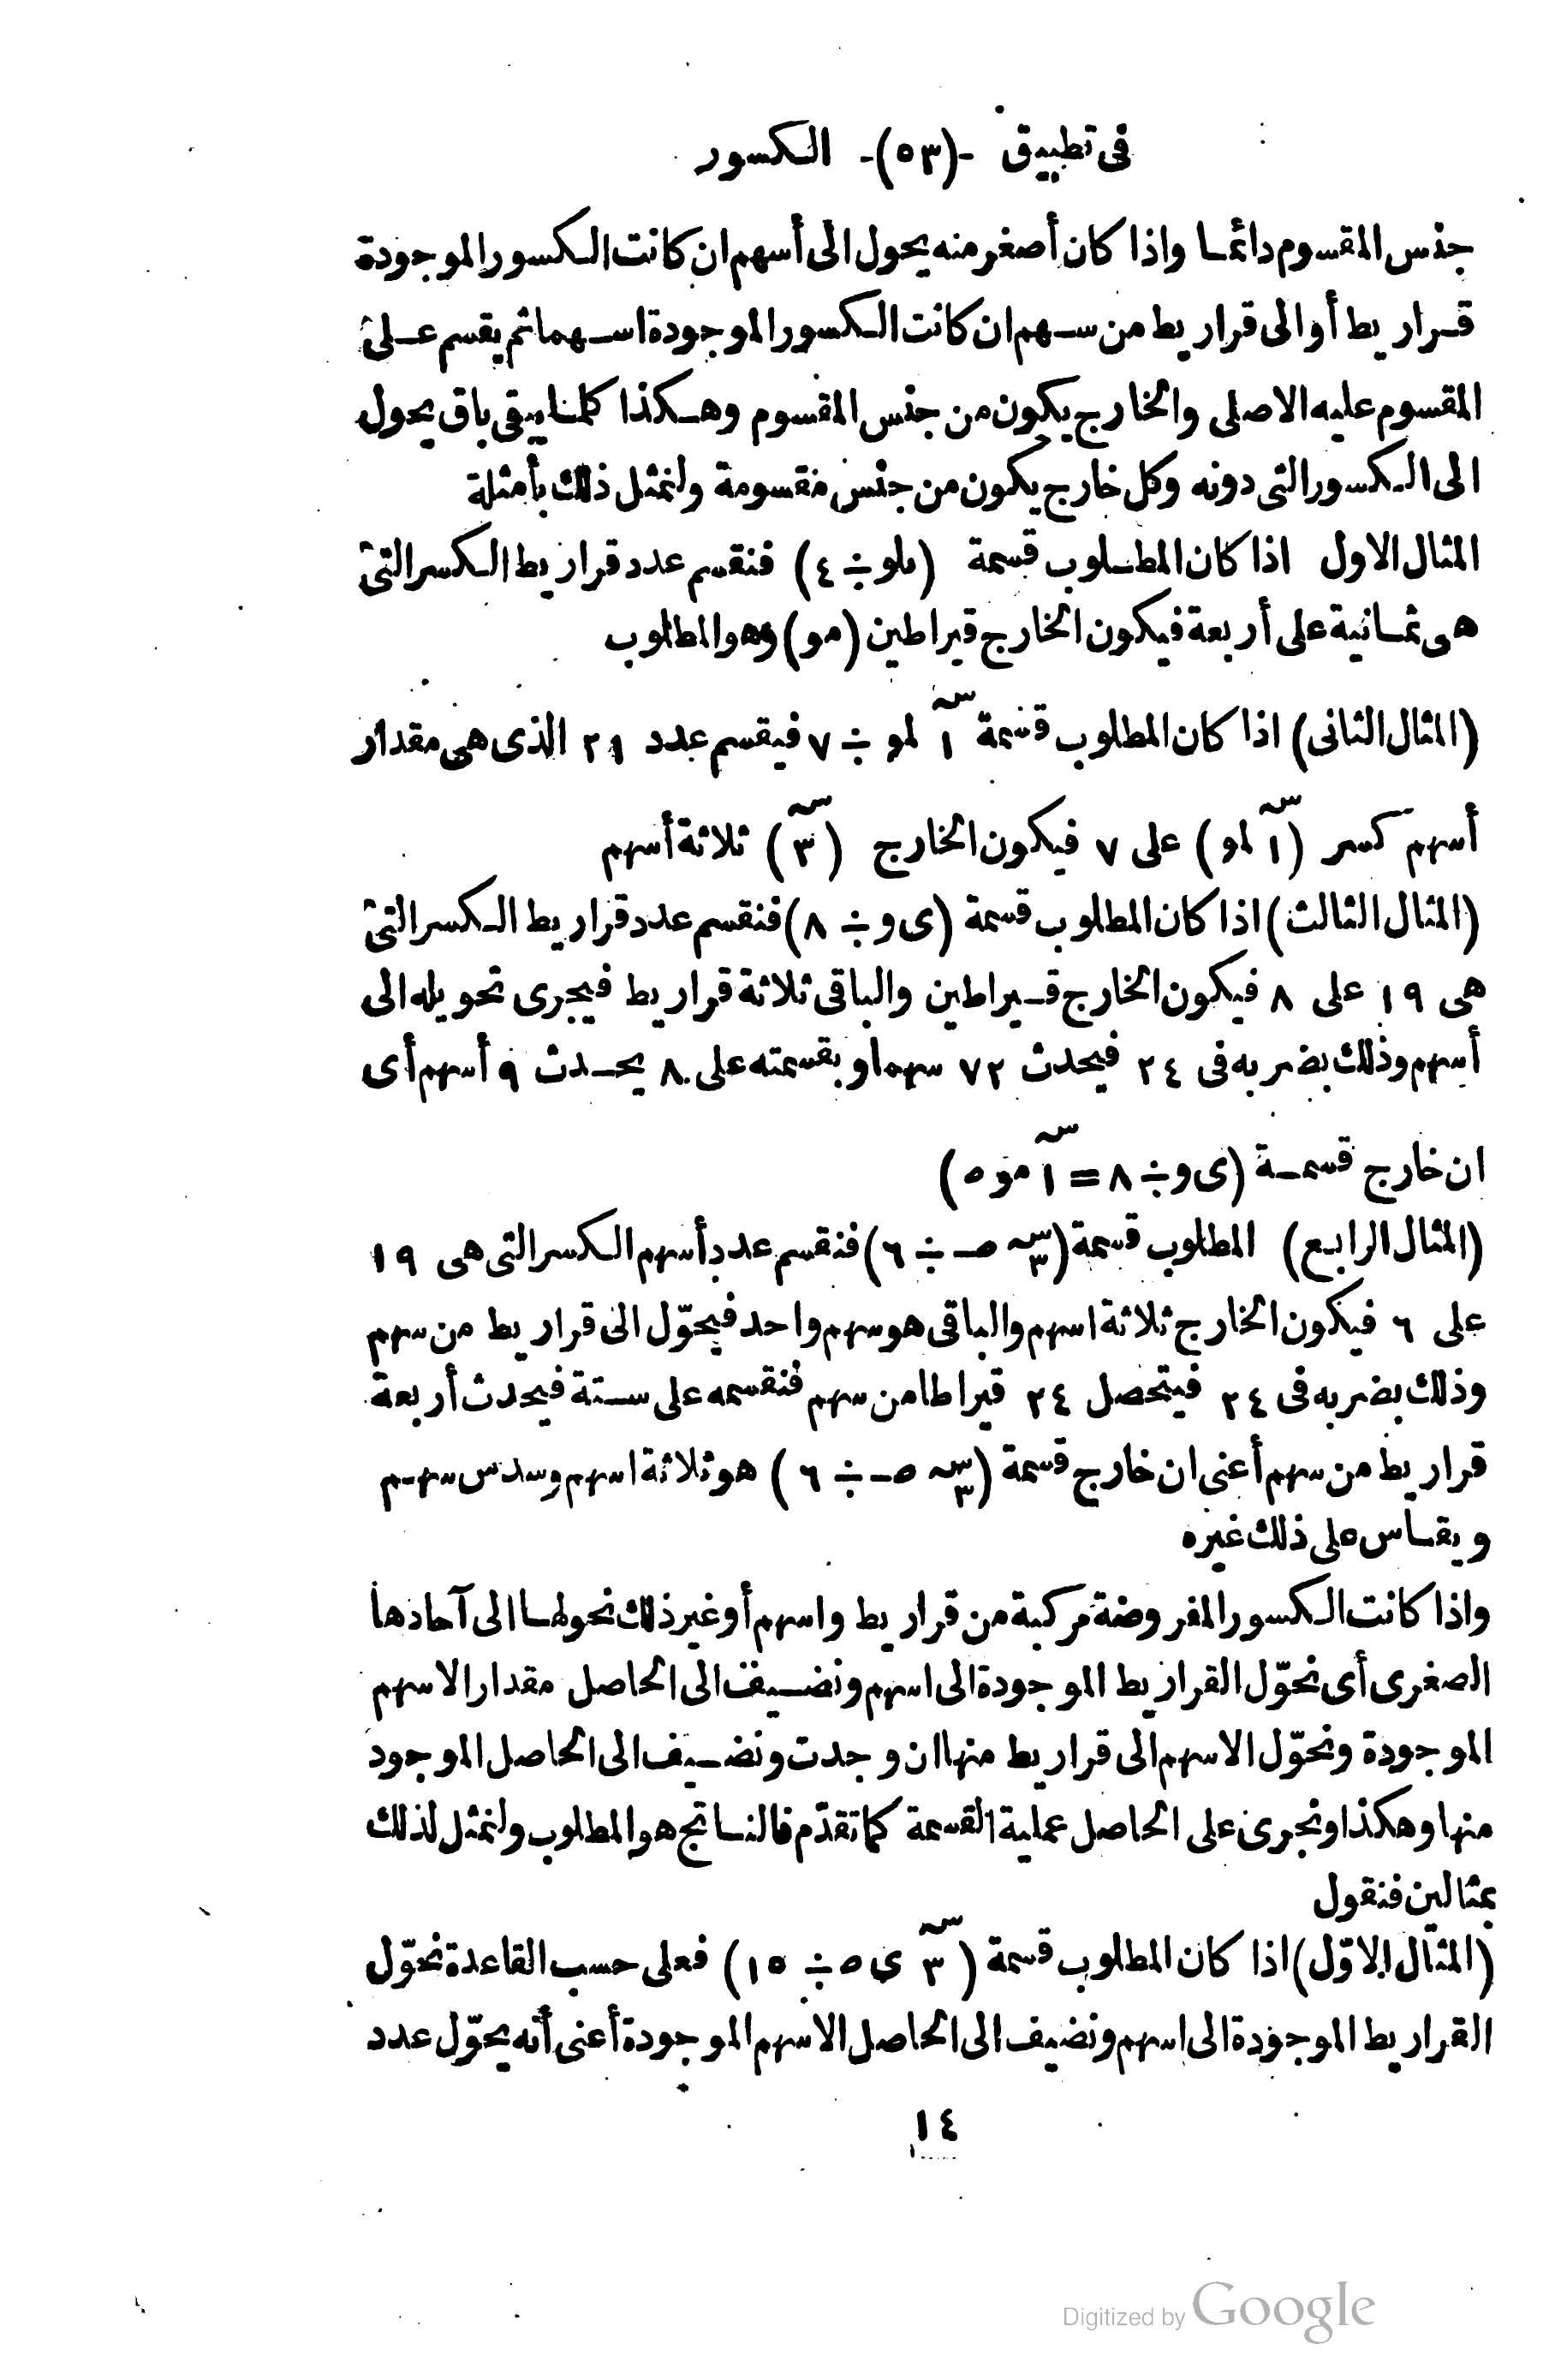 فى تطبيق -(٥٣)- الكسور
جنس المقسوم دائما واذا كان أصغر منه يحول الى أسهم ان كانت الكسور الموجودة
قراريط أو الى قراريط من سهم ان كانت الكسور الموجودة اسهما ثم يقسم على
المقسوم عليه الاصلى والخارج يكون من جنس المقسوم وهكذا كلما يبقى باق يحول
الى الكسور التى دونه وكل خارج يكون من جنس مقسومة ولنمثل ذلك بأمثلة
المثال الاول اذا كان المطلوب قسمة ( ÷ ٤) فنقسم عدد قراريط الكسر التى
هى ثمانية على أربعة فيكون الخارج قيراطين (مو) وهو المطلوب
(المثال الثانى) اذا كان المطلوب قسمة آ لمو ÷ ٧ فيقسم عدد ٢١ الذى هى مقدار
أسهم كسر (آ لمو) على ٧ فيكون الخارج (٣) ثلاثة أسهم
(المثال الثالث) اذا كان المطلوب قسمة (ى و ÷ ٨) فنقسم عدد قراريط الكسر التى
هى ١٩ على ٨ فيكون الخارج قيراطين والباقى ثلاثة قراريط فيجرى تحويله الى
أسهم وذلك بضربه فى ٢٤ فيحدث ٧٢ سهما وبقسمته على ٨ يحدث ٩ أسهم أى
ان خارج قسمة (ى و ÷ ٨ = آ مو ه)
(المثال الرابع) المطلوب قسمة (٣ سه صـ ÷ ٦) فنقسم عدد أسهم الكسر التى هى ١٩
على ٦ فيكون الخارج ثلاثة اسهم والباقى هو سهم واحد فيحوّل الى قراريط من سهم
وذلك بضربه فى ٢٤ فيتحصل ٢٤ قيراطا من سهم فنقسمه على ستة فيحدث أربعة
قراريط من سهم أعنى ان خارج قسمة (٣ سه صـ ÷ ٦) هو ثلاثة اسهم وسدس سهم
ويقاس على ذلك غيره
واذا كانت الكسور المفروضة مركبة من قراريط واسهم أو غير ذلك نحولها الى آحادها
الصغرى أى نحوّل القراريط الموجودة الى اسهم ونضيف الى الحاصل مقدار الاسهم
الموجودة ونحوّل الاسهم الى قراريط منها ان وجدت ونضيف الى الحاصل الموجود
منها وهكذا ونجرى على الحاصل عملية القسمة كما تقدّم فالناتج هو المطلوب ولنمثل لذلك
بمثالين فنقول
(المثال الاوّل) اذا كان المطلوب قسمة (٣ ى ه ÷ ١٥) فعلى حسب القاعدة نحوّل
القراريط الموجودة الى اسهم ونضيف الى الحاصل الاسهم الموجودة أعنى أنه يحوّل عدد
١٤
Digitized by Google